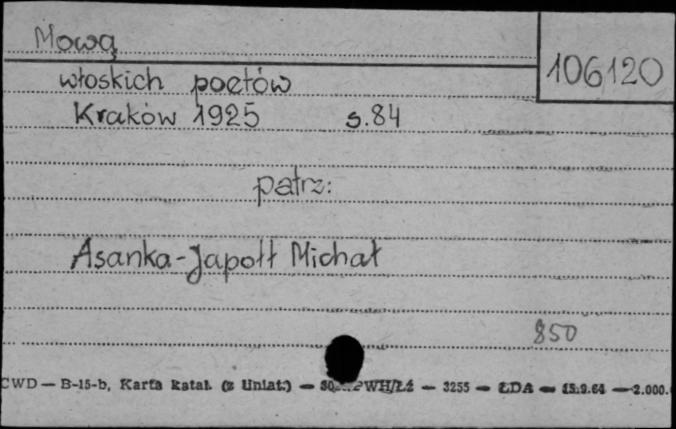 Mową
106120
włoskich poetów
Kraków 1925 s.84
patrz:
Asanka-Japołł Michał
850
CWD — B-15-b, Karta katal. (z Uniat.) — PWH/Łź — 3255 — ŁDA — 15.9.64 — 2.000.